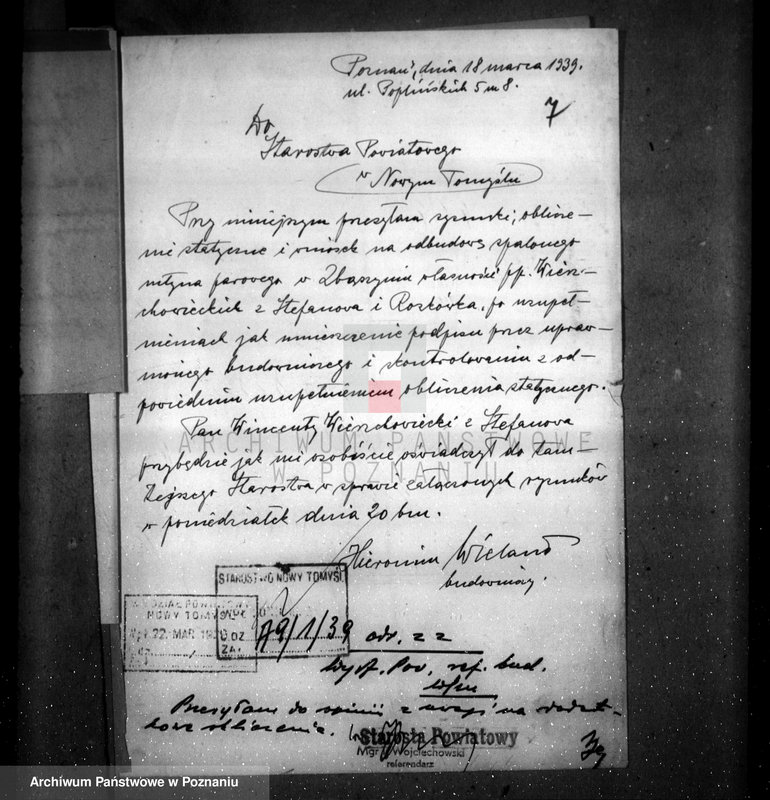 Poznań, dnia 18 marca 1939.
ul. Poplińskich 5 m 8.
7
Do
Starostwa Powiatowego
w Nowym Tomyślu
Przy niniejszym przesyłam rysunki, oblicze-
nie statyczne i wniosek na odbudowę spalonego
młyna parowego w Zbąszyniu własność pp. Wierz-
chowieckich z Stefanowa i Rozkówka, po uzupeł-
nieniach jak umieszczenie podpisu przez upraw-
nionego budowniczego i skontrolowaniu z od-
powiednim uzupełnieniem obliczenia statycznego.
Pan Wincenty Wierzchowiecki z Stefanowa
przybędzie jak mi osobiście oświadczył do tam-
tejszego Starostwa w sprawie załączonych rysunków
w poniedziałek dnia 20 bm.
Hieronim Wieland
budowniczy.
STAROSTWO NOWY TOMYŚL
WYDZIAŁ POWIATOWY
NOWY TOMYŚL
22. MAR. 1939
79/1/39
odr. z z
Wydz. Pow. ref. bud.
w/m
Przesyłam do opinii z uwagi na
obliczenia.
Starosta Powiatowy
Mgr Wojciechowski
referendarz
ARCHIWUM PAŃSTWOWE
W POZNANIU
Archiwum Państwowe w Poznaniu